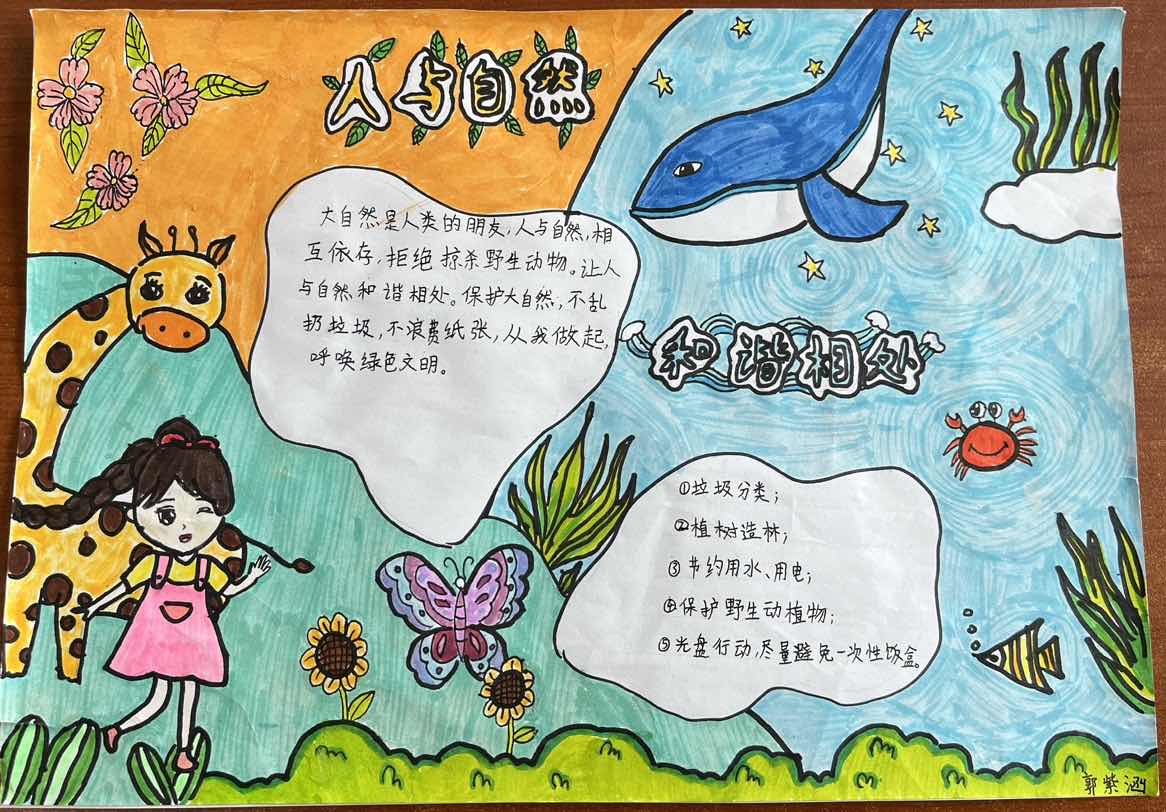 人与自然
大自然是人类的朋友,人与自然,相
互依存,拒绝掠杀野生动物。让人
与自然和谐相处。保护大自然,不乱
扔垃圾,不浪费纸张,从我做起,
呼唤绿色文明。
和谐相处
①垃圾分类;
②植树造林;
③节约用水、用电;
④保护野生动植物;
⑤光盘行动,尽量避免一次性饭盒。
郭紫涵